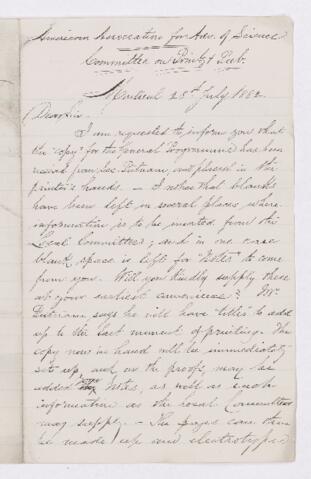 American Association for Adv. of Science
Committee on Print & Pub.
Montreal 25th July 1882
Dear Sir,
I am requested to inform you that
the "copy" for the General Programme has been
received from Sec. Putnam, and placed in the
printer's hands. — I notice that blanks
have been left in several places where
information is to be inserted from the
Local Committees; and in one case
blank space is left for "Notes" to come
from you. Will you kindly supply these
at your earliest convenience? Mr.
Putnam says he will have little to add
up to the last moment of printing. The
copy now in hand will be immediately
set up and on the proofs may be
added Notes, as well as such
information as the Local Committee
may supply. — The pages can then
be made up and electrotyped